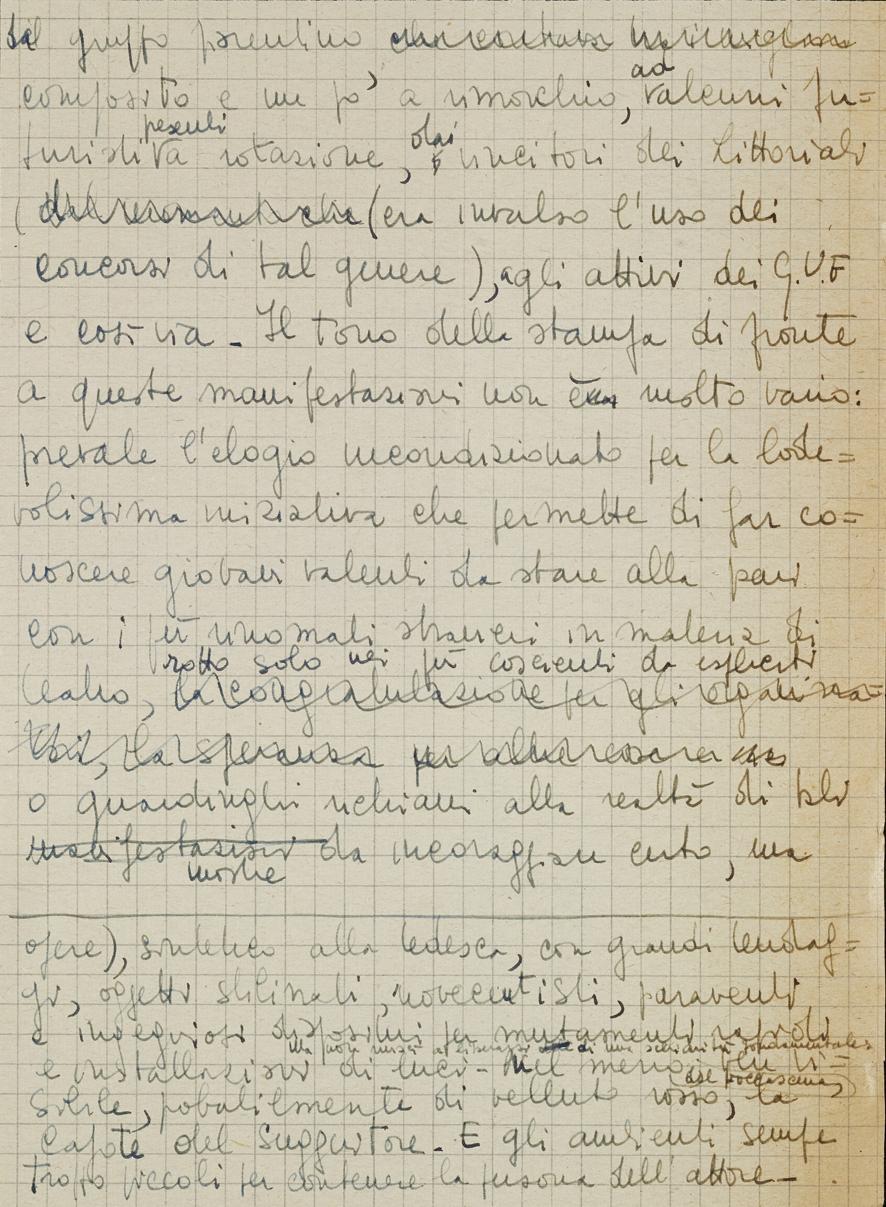 del gruppo fiorentino
composito e un po' a rimorchio, ad valenni fu=
turisti pesuli rotazione, dai vincitori dei Littoriali
(era invalso l'uso dei
concorsi di tal genere), agli attivi dei G.U.F
e così via - Il tono della stampa di fronte
a queste manifestazioni non è molto vario:
prevale l'elogio incondizionato per la lode=
volissima iniziativa che permette di far co=
noscere giovani valenti da stare alla pari
con i più rinomati stranieri in materia di
rotto solo nei più coscienti da espliciti
teatro, la congratulazione per gli organizza=
tori, la speranza
o guardinghi richiami alla realtà di tali
manifestazioni da incoraggiare certo, ma
mostre
opere), sintetico alla tedesca, con grandi tendag=
gi, oggetti stilizzati, novecentisti, paraventi
e ingegnosi dispositivi per mutamenti rapidi
ma non di una serietà fondamentale
e installazioni di luci - Nel mezzo, ben vi=
del boccascena
sibile, probabilmente di velluto rosso, la
capote del suggeritore - E gli ambienti sempre
troppo piccoli per contenere la persona dell'attore -